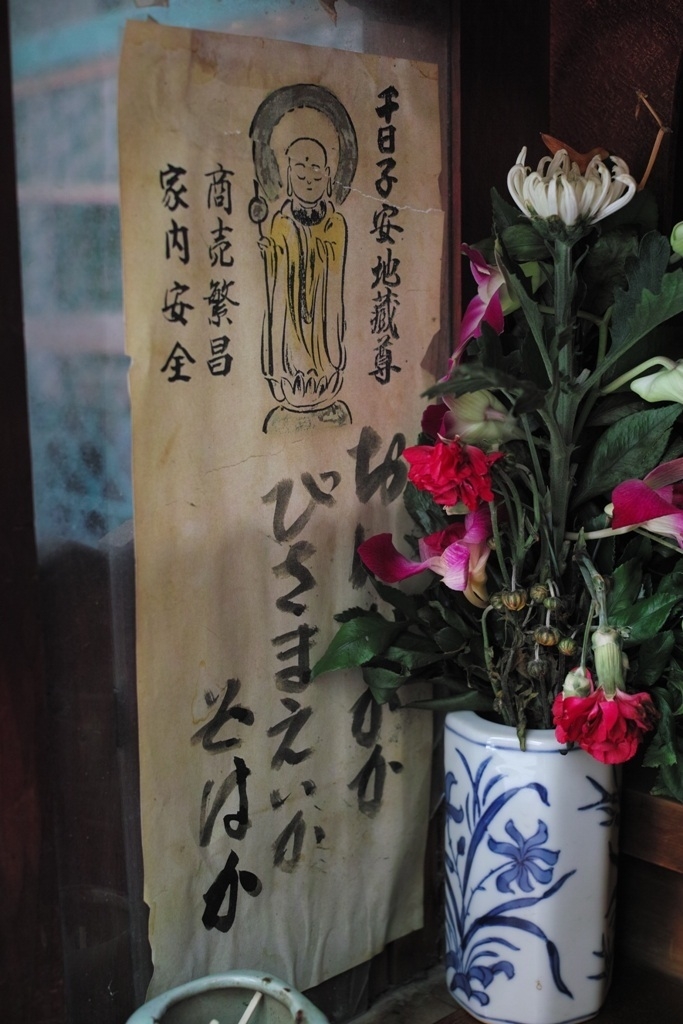 千日子安地蔵尊
商売繁昌
家内安全
おんかかか
びさまえいか
そはか